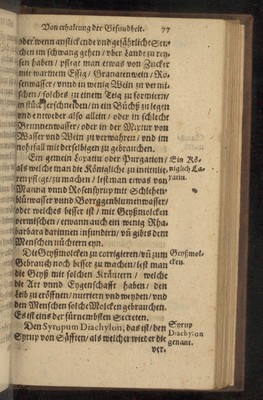 Von erhaltung der Gesundheit. 77
oder wenn ansteckende und gefährliche Seu-
chen im schwang gehen / vber Land zu rey-
sen haben / pflegt man etwas von Zucker
mit warmem Essig / Granatenwein / Ro-
senwasser / vnnd in wenig Wein zu vermi-
schen / solches zu einem Teig zu formiern /
in stück zerschneiden / in ein Büchß zu legen
vnd entweder also allein / oder in schlecht
Brunnenwasser / oder in der Mixtur von
Wasser vnd Wein zu verwahren / vnd im
nohtfall mit derselbigen zu gebrauchen.
Ein gemein Laxatiu oder Purgatien /
als welche man die Königliche zu intitulie-
ren pflegt / zu machen / sest man etwas von
Manna vnnd Rosensyrup mit Schlehen-
blüwasser vnnd Borrggenblumenwasser /
oder welches besser ist / mit Geyßmolcken
vermischen / etwann auch ein wenig Rha-
barbara darinnen infundirn / vñ gibts dem
Menschen nüchtern eyn.
Ein Kö-
niglich La-
xatiu.
Die Geyßmolcken zu corrigieren / vñ zum
Gebrauch noch besser zu machen / lest man
die Geyß mit solchen Kräutern / welche
die Art vnnd Eygenschafft haben / den
Leib zu eröffnen / nutriern vnd weyden / vnd
den Menschen solche Molcken gebrauchen.
Es ist eins der fürnembsten Secreten.
Geyßmol-
cken.
Den Syrupum Diachylon, das ist / den
Syrup von Säfften / als welcher wieder die
ver-
Syrup
Diachylon
genant.